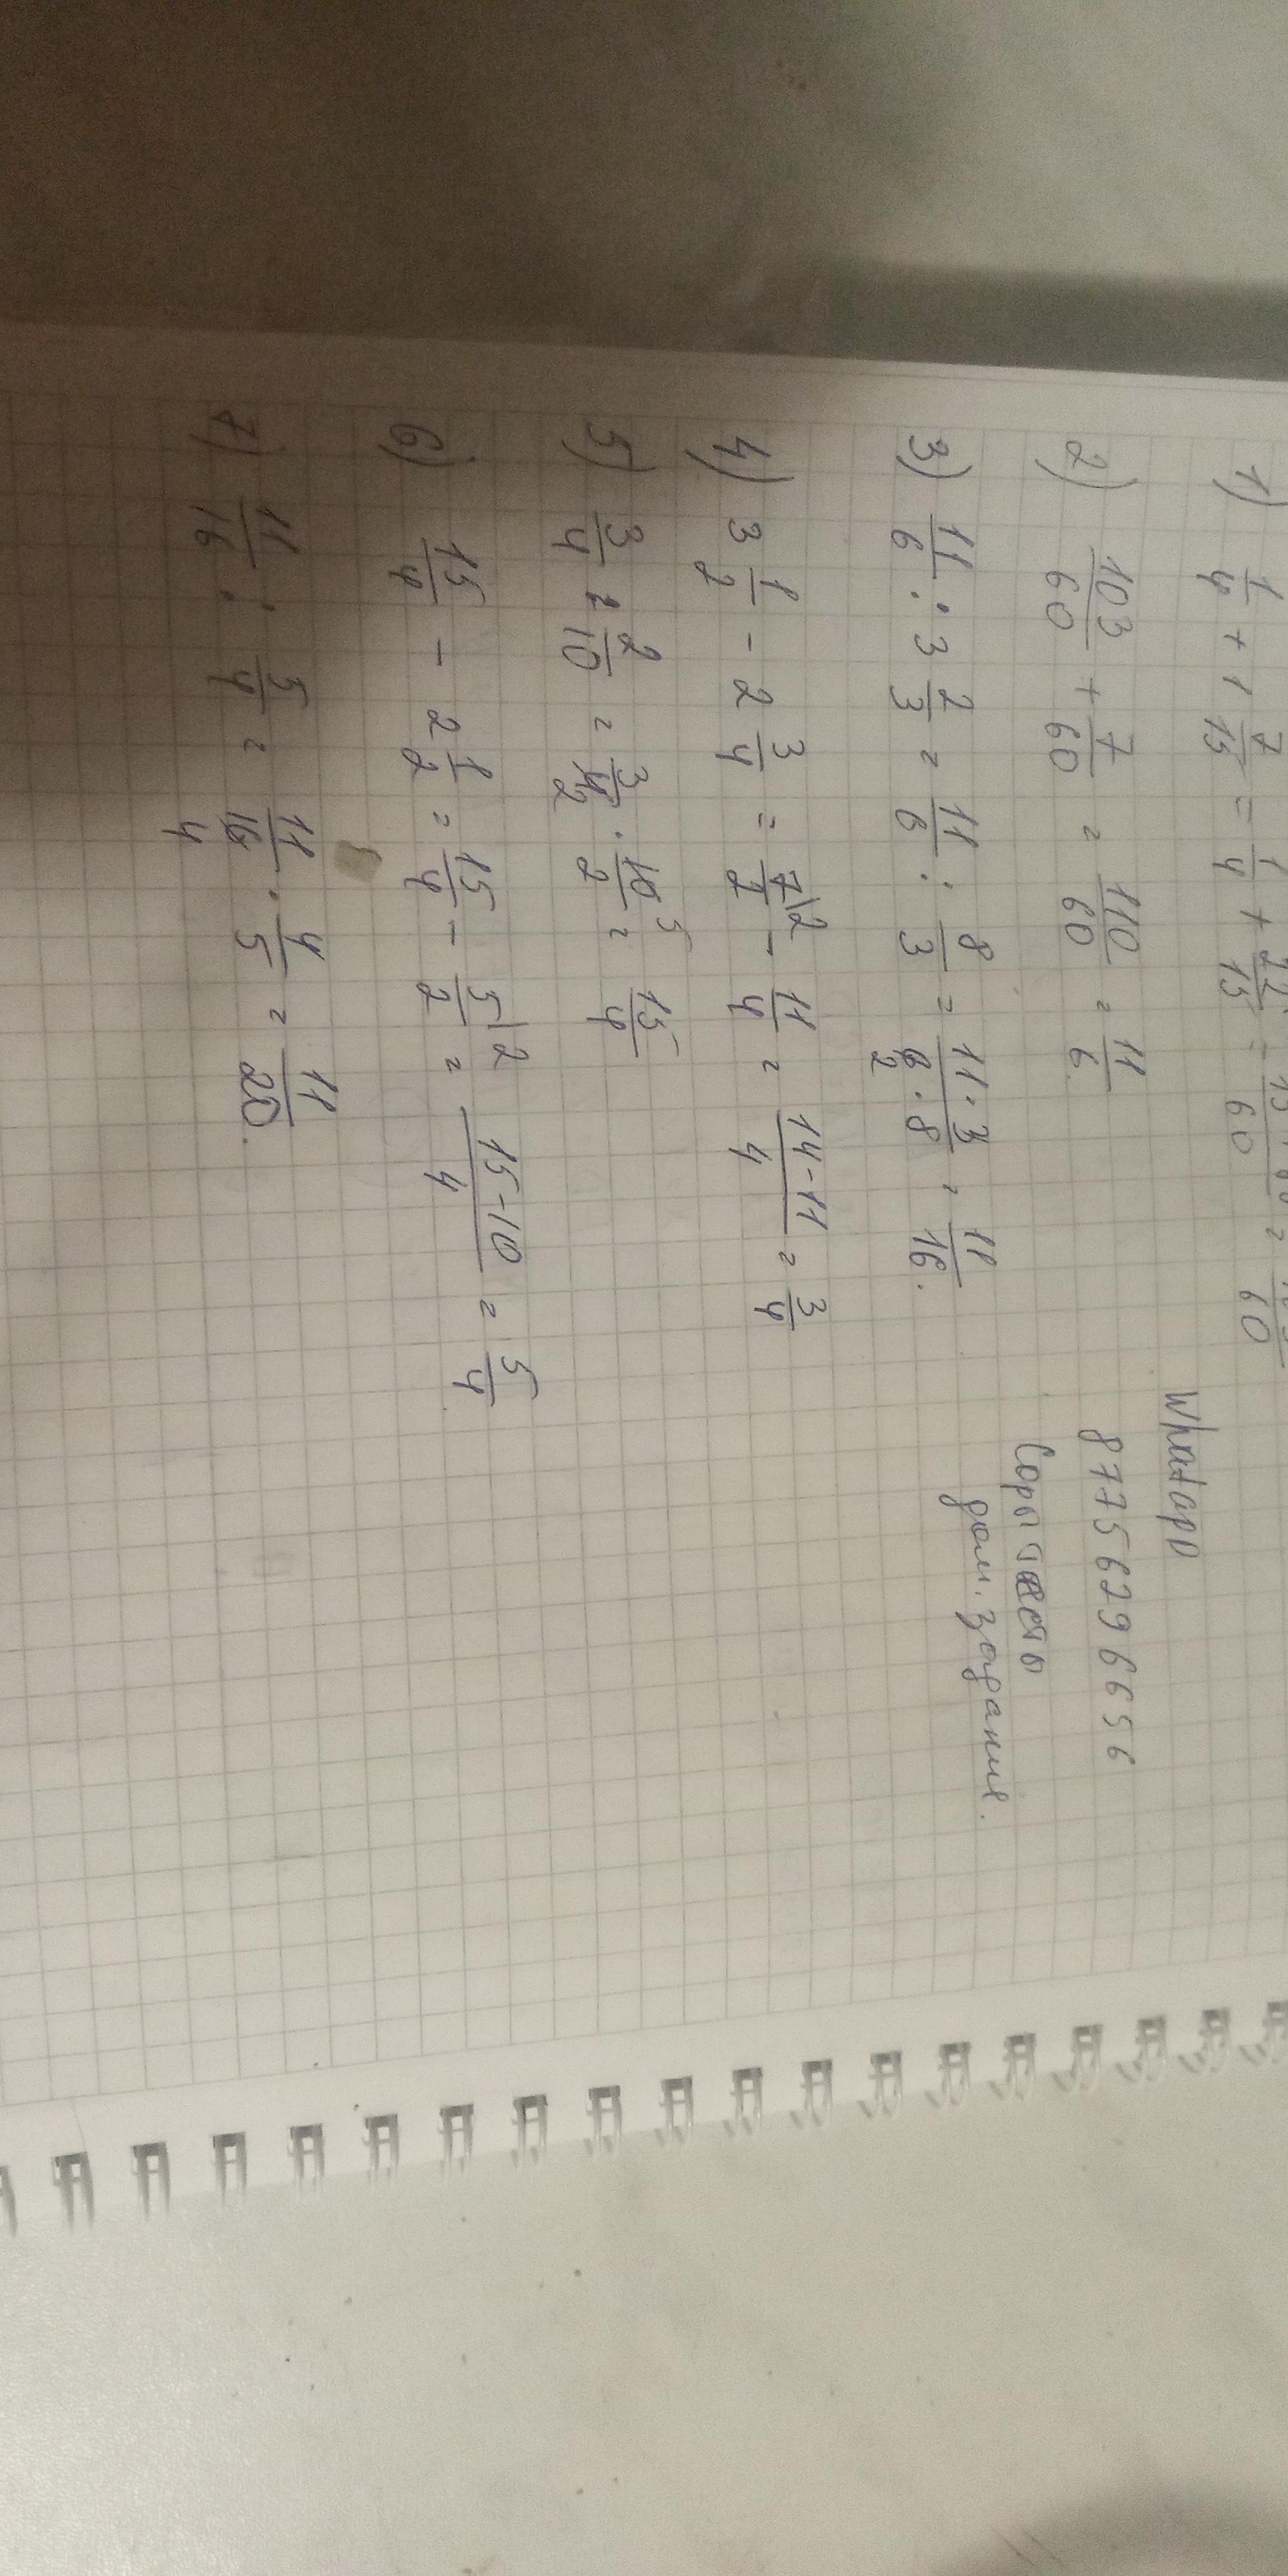 1) 1/4 + 1 7/15 = 1/4 + 22/15 = 15+88/60 = 103/60
2) 103/60 + 7/60 = 110/60 = 11/6.
3) 11/6 : 3 2/3 = 11/6 : 8/3 = 11·3/6·8 2 = 11/16.
4) 3 1/2 - 2 3/4 = 7/2\2 - 11/4 = 14-11/4 = 3/4
5) 3/4 : 2/10 = 3/4 2 · 10 5/2 = 15/4
6) 15/4 - 2 1/2 = 15/4 - 5/2\2 = 15-10/4 = 5/4
7) 11/16 : 5/4 = 11/16 4 · 4/5 = 11/20.
Whatapp
87756296656
Соры
дом. задания.